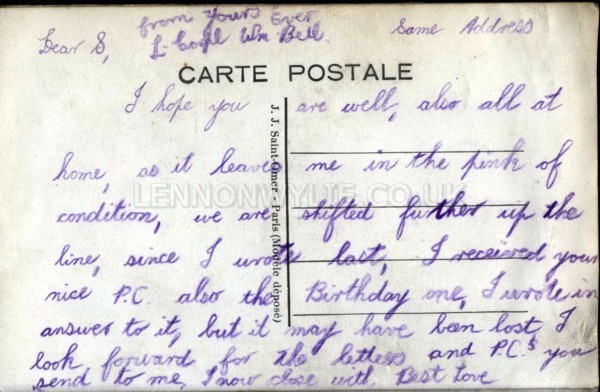 from yours Ever
Dear S, L-Corpl Wm Bell. Same Address
CARTE POSTALE
I hope you are well, also all at
home, as it leaves me in the pink of
condition, we are shifted further up the
line, since I wrote last, I received your
nice P.C. also the Birthday one, I wrote in
answer to it, but it may have been lost, I
look forward for the letters and P.C.s you
send to me, I now close with Best Love
J. J. Saint-Omer - Paris (Modèle déposé)
LENNONWYLIE.CO.UK